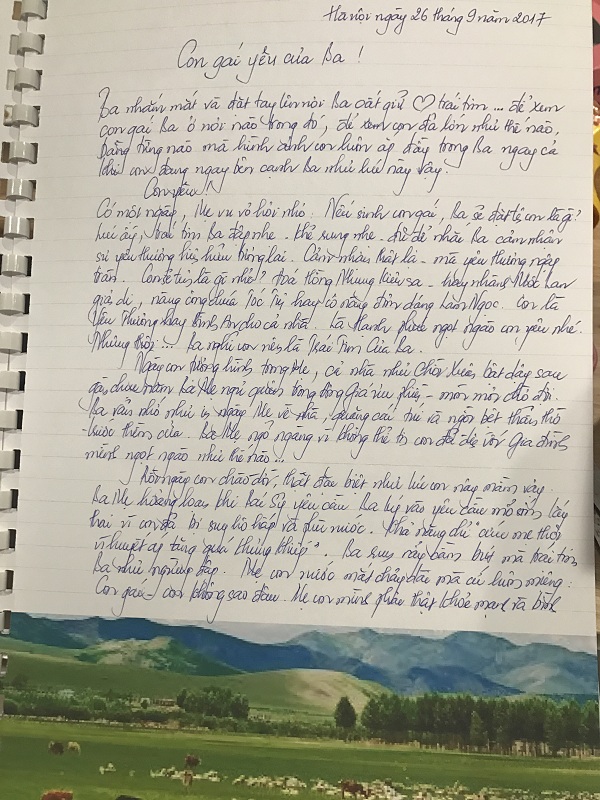 Hà Nội ngày 26 tháng 9 năm 2017
Con gái yêu của Ba !
Ba nhắm mắt và đặt tay lên nơi Ba cất giữ ♡ trái tim ... để xem
con gái Ba ở nơi nào trong đó, để xem con đã lớn như thế nào,
bằng từng nào mà hình ảnh con luôn ắp đầy trong Ba ngay cả
khi con đang ngay bên cạnh Ba như lúc này vậy.
Con yêu !
Có một ngày, Mẹ vu vơ hỏi nhỏ: Nếu sinh con gái, Ba sẽ đặt tên con là gì?
Lúc ấy, trái tim Ba đập nhẹ - khẽ rung nhẹ - đủ để nhắc Ba cảm nhận
sự yêu thương hiện hữu bỗng lai. Cảm nhận thật lạ - mà yêu thương ngập
tràn. Con sẽ tên là gì nhỉ? Đoá Hồng Nhung kiêu sa - hay nhành Mộc Lan
giản dị, nàng công chúa Tóc Mây hay cô nàng đỏm dáng Lam Ngọc. Con là
Yêu Thương hay Bình An cho cả nhà. Là Hạnh phúc ngọt ngào con yêu nhé.
Nhưng thôi ... Ba nghĩ con nên là Trái Tim Của Ba.
Ngày con tượng hình trong Mẹ, cả nhà như Chồi Xuân bật dậy sau
gần chục năm Ba Mẹ ngủ quên trong Đông Giá - mòn mỏi chờ đợi.
Ba vẫn nhớ như in ngày Mẹ về nhà, quăng cái túi và ngồi bệt thẫn thờ
trước thềm cửa. Ba Mẹ ngỡ ngàng vì không thể tin con đã đến với Gia đình
mình ngọt ngào như thế nào ...
Rồi ngày con chào đời, thật đặc biệt như lúc con nảy mầm vậy.
Ba Mẹ hoảng loạn khi Bác Sỹ yêu cầu Ba ký vào yêu cầu mổ sớm lấy
thai vì con đã bị suy hô hấp và thiếu nước. Khả năng chỉ "cứu mẹ thôi
vì huyết áp tăng quá khủng khiếp". Ba suy nảy bần bật mà trái tim
Ba như ngừng đập. Mẹ con nước mắt chảy dài mà cứ luôn miệng:
Con gái - con không sao đâu. Mẹ con mình phải thật khỏe mạnh và bình